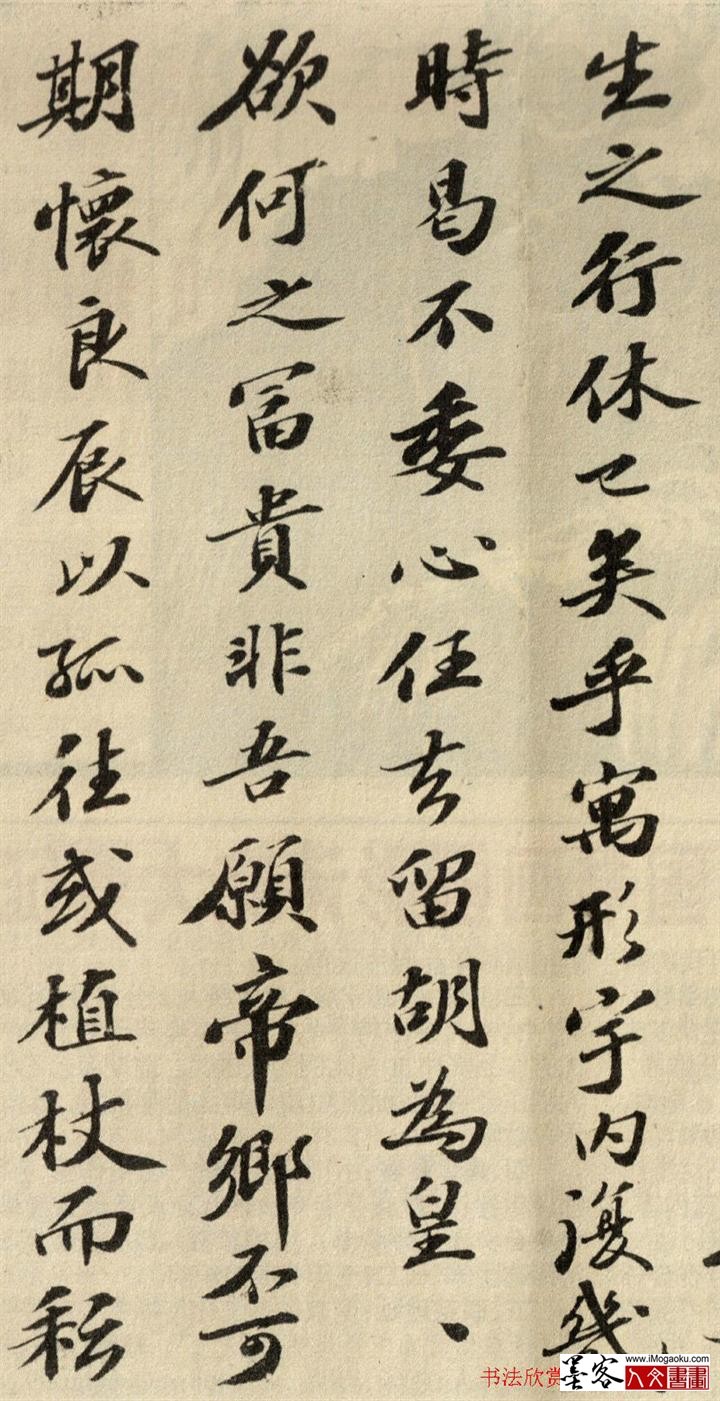 生之行休已矣乎寓形宇内復幾
時曷不委心任去留胡為皇、
欲何之冨貴非吾願帝鄉不可
期懷良辰以孤往或植杖而耘
书法欣赏
墨客
www.iMogaoku.com
人文書畫